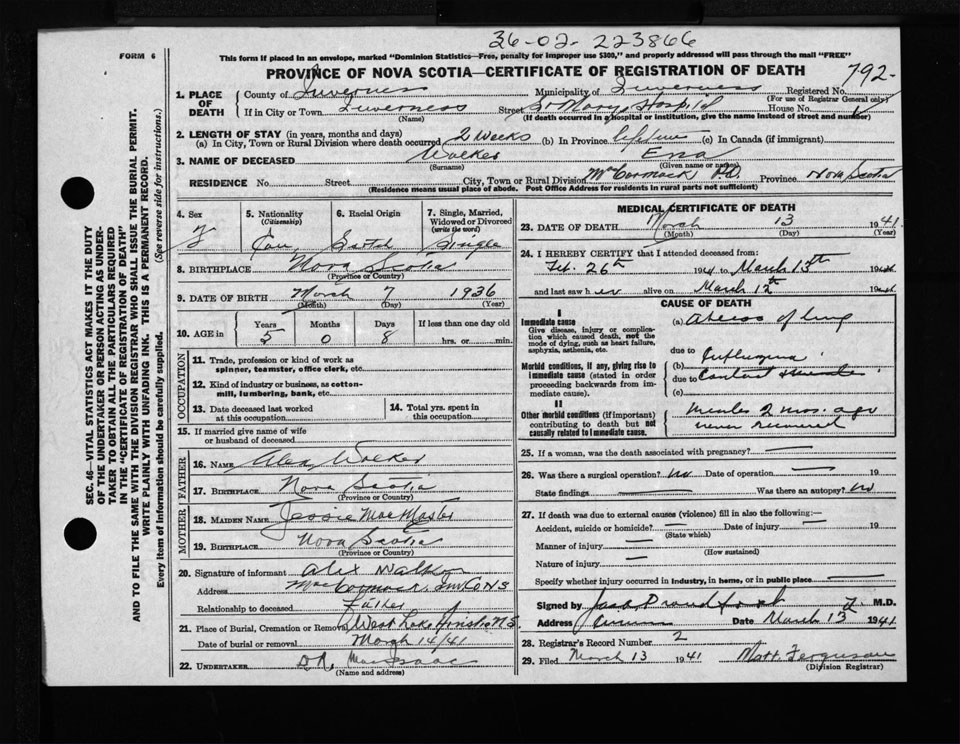 36-02-223866
FORM 6
This form if placed in an envelope, marked "Dominion Statistics—Free, penalty for improper use $300," and properly addressed will pass through the mail "FREE"
PROVINCE OF NOVA SCOTIA—CERTIFICATE OF REGISTRATION OF DEATH
792-
1. PLACE OF DEATH
County of Inverness Municipality of Inverness Registered No.
(For use of Registrar General only)
If in City or Town Inverness Street St Mary's Hospital House No.
(Name) (If death occurred in a hospital or institution, give the name instead of street and number)
2. LENGTH OF STAY (in years, months and days)
(a) In City, Town or Rural Division where death occurred 2 weeks (b) In Province lifetime (c) In Canada (if immigrant)
3. NAME OF DECEASED Walker Ena
(Surname) (Given name or names)
RESIDENCE No. Street City, Town or Rural Division MacCormack Rd. Province Nova Scotia
(Residence means usual place of abode. Post Office Address for residents in rural parts not sufficient)
SEC. 46—VITAL STATISTICS ACT MAKES IT THE DUTY
OF THE UNDERTAKER OR PERSON ACTING AS UNDER-
TAKER TO OBTAIN ALL THE PARTICULARS REQUIRED
IN THE "CERTIFICATE OF REGISTRATION OF DEATH"
AND TO FILE THE SAME WITH THE DIVISION REGISTRAR WHO SHALL ISSUE THE BURIAL PERMIT.
WRITE PLAINLY WITH UNFADING INK. THIS IS A PERMANENT RECORD.
Every item of Information should be carefully supplied. (See reverse side for instructions.)
4. Sex
F
5. Nationality
(Citizenship)
Can
6. Racial Origin
Scotch
7. Single, Married,
Widowed or Divorced
(write the word)
Single
8. BIRTHPLACE Nova Scotia
(Province or Country)
9. DATE OF BIRTH March 7 1936
(Month) (Day) (Year)
10. AGE in
Years Months Days If less than one day old
5 0 8 hrs. or min.
OCCUPATION
11. Trade, profession or kind of work as
spinner, teamster, office clerk, etc.
12. Kind of industry or business, as cotton-
mill, lumbering, bank, etc.
13. Date deceased last worked
at this occupation
14. Total yrs. spent in
this occupation
15. If married give name of wife
or husband of deceased
FATHER
16. NAME Alex Walker
17. BIRTHPLACE Nova Scotia
(Province or Country)
MOTHER
18. MAIDEN NAME Jessie MacMaster
19. BIRTHPLACE Nova Scotia
(Province or Country)
20. Signature of informant Alex Walker
Address MacCormack N S
Relationship to deceased Father
21. Place of Burial, Cremation or Removal West Lake Ainslie N.S.
Date of burial or removal March 14/41
22. UNDERTAKER MacIsaac
(Name and address)
MEDICAL CERTIFICATE OF DEATH
23. DATE OF DEATH March 13 1941
(Month) (Day) (Year)
24. I HEREBY CERTIFY that I attended deceased from:
Feb. 26th 1941 to March 13th 19
and last saw her alive on March 12th 19
CAUSE OF DEATH
I
Immediate cause
Give disease, injury or complica-
tion which caused death, not the
mode of dying, such as heart failure,
asphyxia, asthenia, etc.
Morbid conditions, if any, giving rise to
immediate cause (stated in order
proceeding backwards from im-
mediate cause).
II
Other morbid conditions (if important)
contributing to death but not
causally related to immediate cause.
(a) Abscess of lung
due to
(b) Influenza
due to
(c)
2 mos. ago
never recovered
25. If a woman, was the death associated with pregnancy? —
26. Was there a surgical operation? no Date of operation — 19
State findings Was there an autopsy? no
27. If death was due to external causes (violence) fill in also the following:—
Accident, suicide or homicide? — Date of injury — 19
(State which)
Manner of injury —
(How sustained)
Nature of injury —
Specify whether injury occurred in industry, in home, or in public place —
Signed by Proudfoot M.D.
Address Date March 13 1941
28. Registrar's Record Number 2
29. Filed March 13 1941 Matt. Ferguson
(Division Registrar)